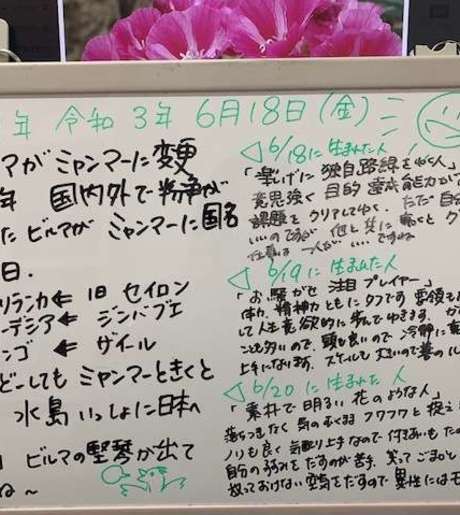 年 令和3年 6月18日(金)
マがミャンマーに変更
年 国内外で紛争が
にビルマがミャンマーに国名
日.
リランカ ⇐ 旧 セイロン
ーデシア ⇐ ジンバブエ
ンゴ ⇐ ザイール
どーしても ミャンマーときくと
水島 いっしょに日本へ
ビルマの竪琴が出て
ね～
◁ 6/18に生まれた人
「楽しげに独自路線をゆく人」
意思強く目的達成能力
課題をクリアしてゆく。ただ
いいのですが 他と共に働くと
仕事は一人が…いいですね
◁ 6/19に生まれた人
「お騒がせ 注目プレイヤー」
体力、精神力ともにタフです
して人生意欲的に歩んでゆきます。
ことも多いので、頭も良いので 冷静に
上手になります。スケールも大きいので
◁ 6/20に生まれた人
「素朴で明るい 花のような人」
落ちつきなく 気のむくまま フワフワと捉え
ノリも良く 気配り上手なので 付きあいも
自分の弱みをだすのが苦手、笑ってごまか
放っておけない 空気をだすので 異性にはモ